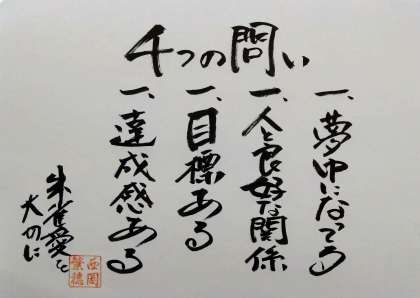 4つの問い
一、夢中になってる
一、人と良好な関係
一、目標ある
一、達成感ある
朱雀愛を
大切に